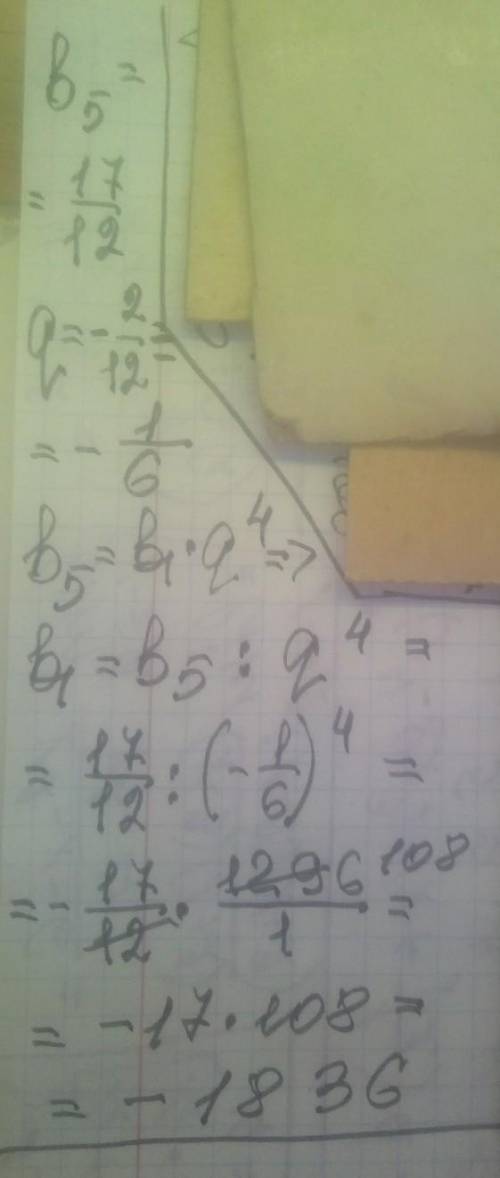 b₅ =
= 17/12
q = - 2/12 =
= - 1/6
b₅ = b₁ · q⁴ =>
b₁ = b₅ : q⁴ =
= 17/12 : (- 1/6)⁴ =
= - 17/12 · 1296/1 108 =
= -17 · 108 =
= - 1836